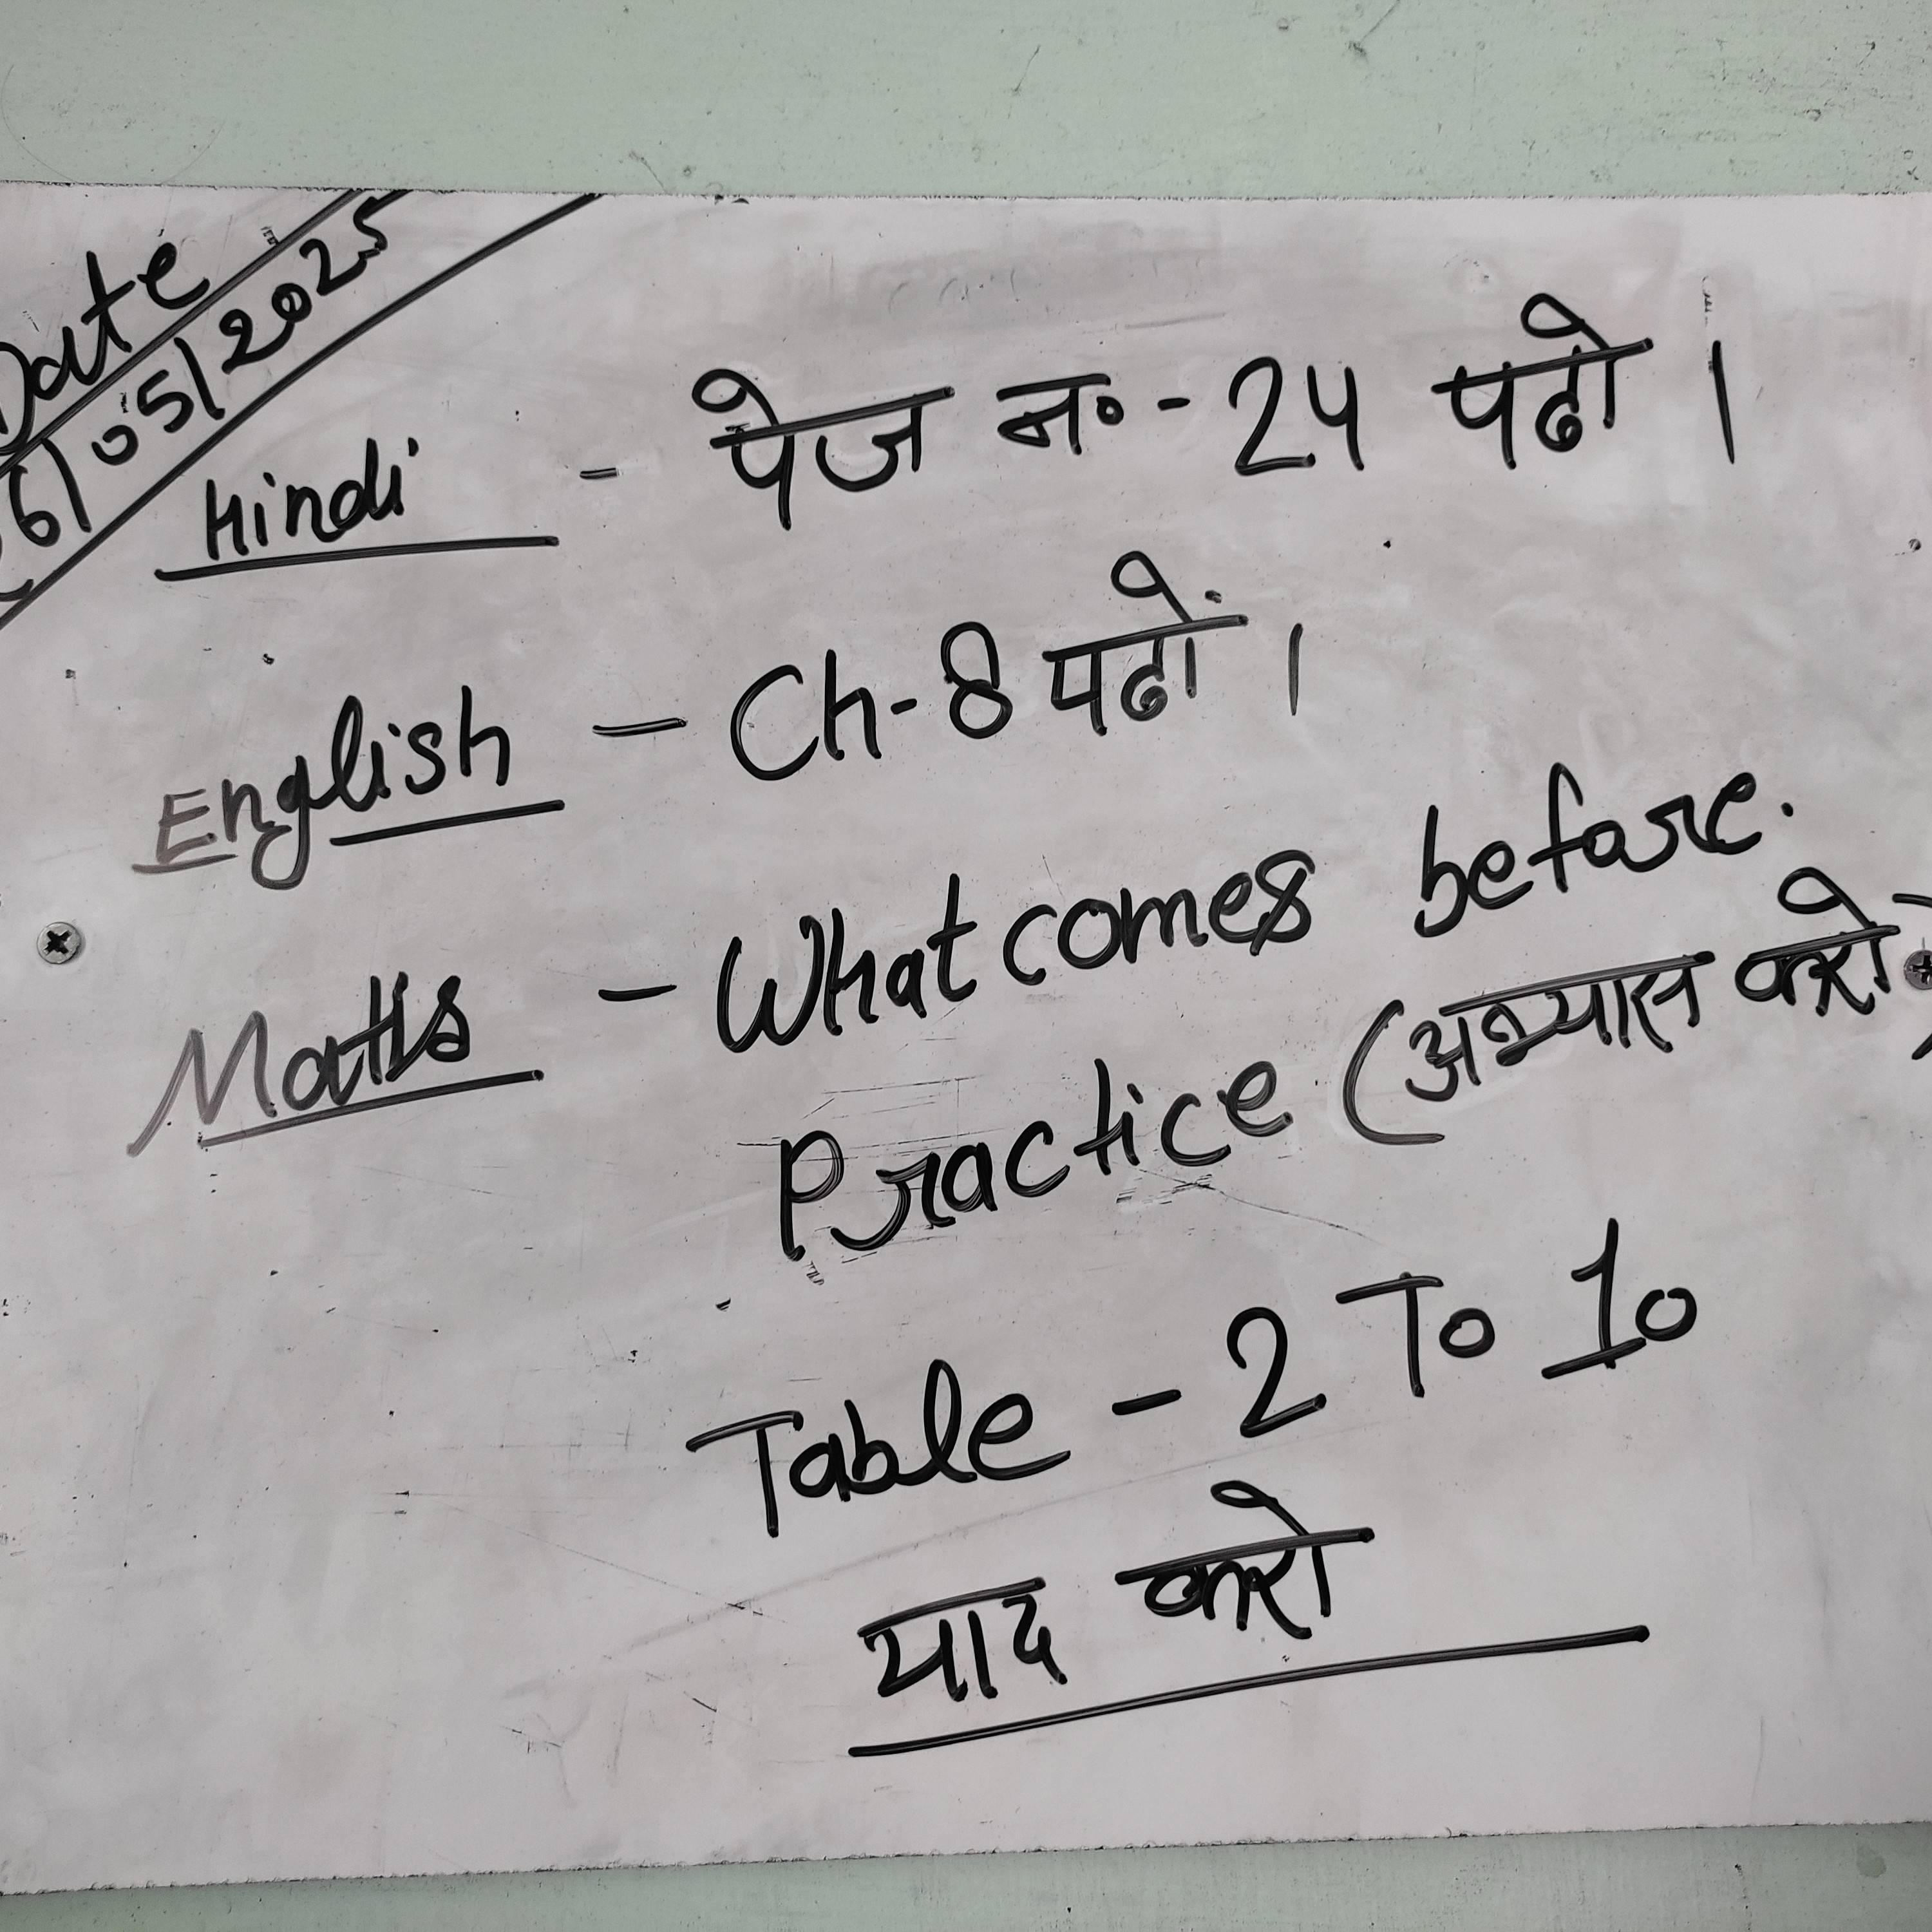 Date
6/05/2025
Hindi - पेज न० - 24 पढो ।
English - Ch-8 पढों ।
Maths - What comes before.
Practice (अभ्यास करो)
Table - 2 To 10
याद करो